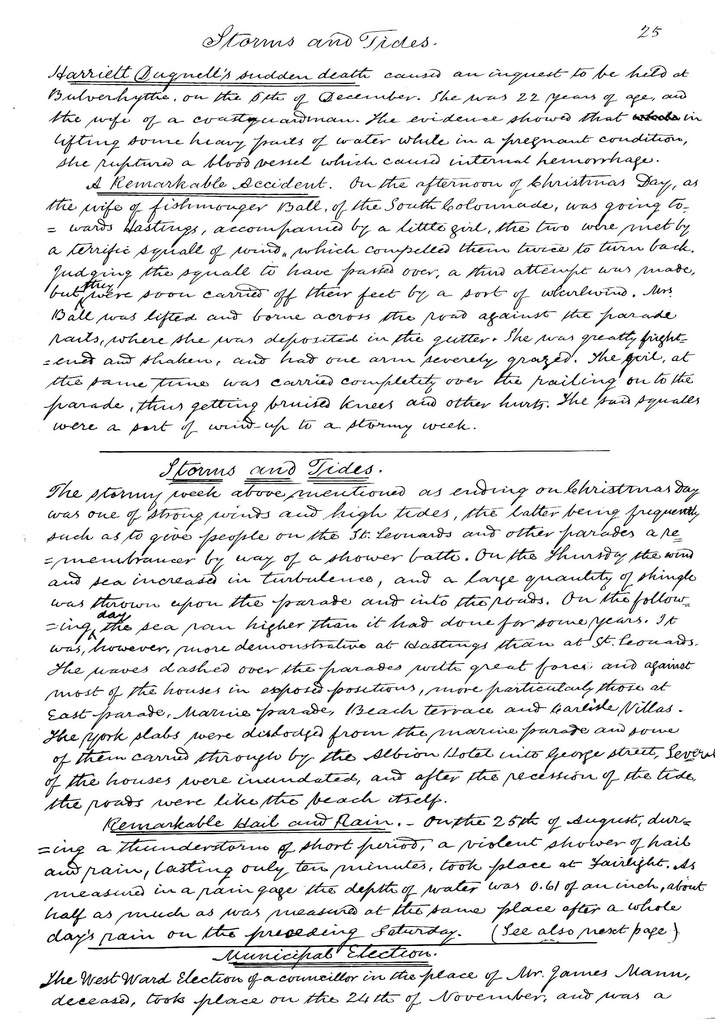 Storms and Tides.
25
Harriett Dugnell's sudden death caused an inquest to be held at
Bulverhythe, on the 5th of December. She was 22 years of age, and
the wife of a coastguardman. The evidence showed that in
lifting some heavy parts of water while in a pregnant condition,
she ruptured a blood vessel which caused internal hemorrhage.
A Remarkable Accident. On the afternoon of Christmas Day, as
the wife of fishmonger Ball, of the South Colonnade, was going to-
=wards Hastings, accompanied by a little girl, the two were met by
a terrific squall of wind, which compelled them twice to turn back.
Judging the squall to have passed over, a third attempt was made,
but they were soon carried off their feet by a sort of whirlwind. Mrs.
Ball was lifted and borne across the road against the parade
rails, where she was deposited in the gutter. She was greatly fright-
=ened and shaken, and had one arm severely grazed. The girl, at
the same time was carried completely over the railing on to the
parade, thus getting bruised knees and other hurts. The said squalls
were a sort of wind-up to a stormy week.
Storms and Tides.
The stormy week above mentioned as ending on Christmas Day
was one of strong winds and high tides, the latter being frequently
such as to give people on the St. Leonards and other parades a re-
=membrancer by way of a shower bath. On the Thursday the wind
and sea increased in turbulence, and a large quantity of shingle
was thrown upon the parade and into the roads. On the follow-
=ing day the sea ran higher than it had done for some years. It
was, however, more demonstrative at Hastings than at St. Leonards.
The waves dashed over the parades with great force and against
most of the houses in exposed positions, more particularly those at
East parade, Marine parade, Beach terrace and Carlisle Villas.
The York slabs were dislodged from the marine parade and some
of them carried through by the Albion Hotel into George street. Several
of the houses were inundated, and after the recession of the tide
the roads were like the beach itself.
Remarkable Hail and Rain. - On the 25th of August, dur-
=ing a thunderstorm of short period, a violent shower of hail
and rain, lasting only ten minutes, took place at Fairlight. As
measured in a rain gage the depth of water was 0.61 of an inch, about
half as much as was measured at the same place after a whole
day's rain on the preceding Saturday. (See also next page)
Municipal Election.
The West Ward Election of a councillor in the place of Mr. James Mann,
deceased, took place on the 24th of November, and was a